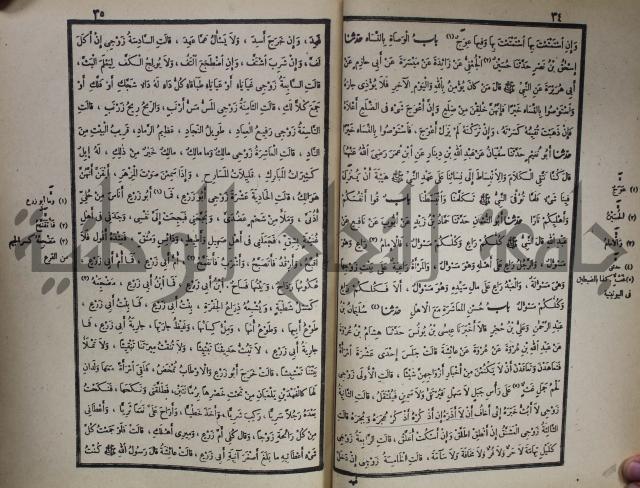 ٣٤
وَإِنِ اسْتَمْتَعْتَ بِهَا اسْتَمْتَعْتَ بِهَا وَفِيهَا عِوَجٌ (١) بابُ الْوَصَاةِ بِالنِّسَاءِ حدثنا
إِسْحٰقُ بْنُ نَصْرٍ حَدَّثَنَا حُسَيْنٌ (٢) الْجُعْفِيُّ عَنْ زَائِدَةَ عَنْ مَيْسَرَةَ عَنْ أَبِي حَازِمٍ عَنْ
أَبِي هُرَيْرَةَ عَنِ النَّبِيِّ ﷺ قَالَ مَنْ كَانَ يُؤْمِنُ بِاللهِ وَالْيَوْمِ الآخِرِ فَلَا يُؤْذِي جَارَهُ
وَاسْتَوْصُوا بِالنِّسَاءِ خَيْرًا فَإِنَّهُنَّ خُلِقْنَ مِنْ ضِلَعٍ وَإِنَّ أَعْوَجَ شَيْءٍ فِي الضِّلَعِ أَعْلَاهُ
فَإِنْ ذَهَبْتَ تُقِيمُهُ كَسَرْتَهُ ، وَإِنْ تَرَكْتَهُ لَمْ يَزَلْ أَعْوَجَ ، فَاسْتَوْصُوا بِالنِّسَاءِ خَيْرًا
حدثنا أَبُو نُعَيْمٍ حَدَّثَنَا سُفْيَانُ عَنْ عَبْدِ اللهِ بْنِ دِينَارٍ عَنِ ابْنِ عُمَرَ رَضِيَ اللهُ عَنْهُمَا
قَالَ كُنَّا نَتَّقِي الْكَلَامَ وَالِانْبِسَاطَ إِلَى نِسَائِنَا عَلَى عَهْدِ النَّبِيِّ ﷺ هَيْبَةَ أَنْ يُنْزَلَ
فِينَا شَيْءٌ فَلَمَّا تُوُفِّيَ النَّبِيُّ ﷺ تَكَلَّمْنَا وَانْبَسَطْنَا بابٌ قُوا أَنْفُسَكُمْ
وَأَهْلِيكُمْ نَارًا حدثنا أَبُو النُّعْمَانِ حَدَّثَنَا حَمَّادُ بْنُ زَيْدٍ عَنْ أَيُّوبَ عَنْ نَافِعٍ عَنْ
عَبْدِ اللهِ قَالَ النَّبِيُّ ﷺ كُلُّكُمْ رَاعٍ وَكُلُّكُمْ مَسْؤُلٌ ، فَالْإِمَامُ (٣) رَاعٍ وَهُوَ
مَسْؤُلٌ ، وَالرَّجُلُ رَاعٍ عَلَى أَهْلِهِ وَهُوَ مَسْؤُلٌ ، وَالْمَرْأَةُ رَاعِيَةٌ عَلَى بَيْتِ زَوْجِهَا
وَهِيَ مَسْؤُلَةٌ ، وَالْعَبْدُ رَاعٍ عَلَى مَالِ سَيِّدِهِ وَهُوَ مَسْؤُلٌ ، أَلَا فَكُلُّكُمْ رَاعٍ
وَكُلُّكُمْ مَسْؤُلٌ بابُ حُسْنِ الْمُعَاشَرَةِ مَعَ الْأَهْلِ حدثنا (٤) سُلَيْمَانُ بْنُ
عَبْدِ الرَّحْمٰنِ وَعَلِيُّ بْنُ حُجْرٍ قَالَا أَخْبَرَنَا عِيسَى بْنُ يُونُسَ حَدَّثَنَا هِشَامُ بْنُ عُرْوَةَ
عَنْ عَبْدِ اللهِ بْنِ عُرْوَةَ عَنْ عُرْوَةَ عَنْ عَائِشَةَ قَالَتْ جَلَسَ إِحْدَى عَشْرَةَ امْرَأَةً
فَتَعَاهَدْنَ وَتَعَاقَدْنَ أَنْ لَا يَكْتُمْنَ مِنْ أَخْبَارِ أَزْوَاجِهِنَّ شَيْئًا ، قَالَتِ الْأُولَى زَوْجِي
لَحْمُ جَمَلٍ غَثٍّ (٥) عَلَى رَأْسِ جَبَلٍ لَا سَهْلٍ فَيُرْتَقَى وَلَا سَمِينٍ فَيُنْتَقَلُ ، قَالَتِ الثَّانِيَةُ
زَوْجِي لَا أَبُثُّ خَبَرَهُ إِنِّي أَخَافُ أَنْ لَا أَذَرَهُ إِنْ أَذْكُرْهُ أَذْكُرْ عُجَرَهُ وَبُجَرَهُ قَالَتِ
الثَّالِثَةُ زَوْجِي الْعَشَنَّقُ إِنْ أَنْطِقْ أُطَلَّقْ وَإِنْ أَسْكُتْ أُعَلَّقْ ، قَالَتِ الرَّابِعَةُ زَوْجِي
كَلَيْلِ تِهَامَةَ لَا حَرٌّ وَلَا قُرٌّ وَلَا مَخَافَةَ وَلَا سَآمَةَ ، قَالَتِ الْخَامِسَةُ زَوْجِي إِنْ دَخَلَ
فهد
(١) عِوَجٌ
(٢) الْحُسَيْنُ
(٣) وَالْإِمَامُ
(٤) حدثني
(٥)
فى اليونينية
٣٥
فَهِدَ ، وَإِنْ خَرَجَ أَسِدَ ، وَلَا يَسْأَلُ عَمَّا عَهِدَ ، قَالَتِ السَّادِسَةُ زَوْجِي إِنْ أَكَلَ
لَفَّ ، وَإِنْ شَرِبَ اشْتَفَّ ، وَإِنِ اضْطَجَعَ الْتَفَّ ، وَلَا يُولِجُ الْكَفَّ لِيَعْلَمَ الْبَثَّ ،
قَالَتِ السَّابِعَةُ زَوْجِي غَيَايَاءُ أَوْ عَيَايَاءُ طَبَاقَاءُ كُلُّ دَاءٍ لَهُ دَاءٌ شَجَّكِ أَوْ فَلَّكِ أَوْ
جَمَعَ كُلًّا لَكِ ، قَالَتِ الثَّامِنَةُ زَوْجِي الْمَسُّ مَسُّ أَرْنَبٍ ، وَالرِّيحُ رِيحُ زَرْنَبٍ ، قَالَتِ
التَّاسِعَةُ زَوْجِي رَفِيعُ الْعِمَادِ ، طَوِيلُ النِّجَادِ ، عَظِيمُ الرَّمَادِ ، قَرِيبُ الْبَيْتِ مِنَ
النَّادِ ، قَالَتِ الْعَاشِرَةُ زَوْجِي مَالِكٌ وَمَا مَالِكٌ ، مَالِكٌ خَيْرٌ مِنْ ذٰلِكِ ، لَهُ إِبِلٌ
كَثِيرَاتُ الْمَبَارِكِ ، قَلِيلَاتُ الْمَسَارِحِ ، وَإِذَا سَمِعْنَ صَوْتَ الْمِزْهَرِ ، أَيْقَنَّ أَنَّهُنَّ
هَوَالِكُ ، قَالَتِ الْحَادِيَةَ عَشْرَةَ زَوْجِي أَبُو زَرْعٍ ، فَمَا (١) أَبُو زَرْعٍ أَنَاسَ مِنْ حُلِيٍّ
أُذُنَيَّ ، وَمَلَأَ مِنْ شَحْمٍ عَضُدَيَّ ، وَبَجَّحَنِي فَبَجِحَتْ إِلَيَّ نَفْسِي ، وَجَدَنِي فِي أَهْلِ
غُنَيْمَةٍ بِشِقٍّ ، فَجَعَلَنِي فِي أَهْلِ صَهِيلٍ وَأَطِيطٍ ، وَدَائِسٍ وَمُنَقٍّ ، فَعِنْدَهُ أَقُولُ فَلَا
أُقَبَّحُ وَأَرْقُدُ فَأَتَصَبَّحُ ، وَأَشْرَبُ فَأَتَقَنَّحُ (٢) ، أُمُّ أَبِي زَرْعٍ ، فَمَا أُمُّ أَبِي زَرْعٍ ،
عُكُومُهَا رَدَاحٌ ، وَبَيْتُهَا فَسَاحٌ ، ابْنُ أَبِي زَرْعٍ ، فَمَا ابْنُ أَبِي زَرْعٍ ، مَضْجِعُهُ (٣)
كَمَسَلِّ شَطْبَةٍ ، وَيُشْبِعُهُ ذِرَاعُ الْجَفْرَةِ ، بِنْتُ أَبِي زَرْعٍ ، فَمَا بِنْتُ أَبِي زَرْعٍ ،
طَوْعُ أَبِيهَا ، وَطَوْعُ أُمِّهَا ، وَمِلْءُ كِسَائِهَا ، وَغَيْظُ جَارَتِهَا ، جَارِيَةُ أَبِي زَرْعٍ ، فَمَا
جَارِيَةُ أَبِي زَرْعٍ ، لَا تَبُثُّ حَدِيثَنَا تَبْثِيثًا ، وَلَا تُنَقِّثُ مِيرَتَنَا تَنْقِيثًا ، وَلَا تَمْلَأُ
بَيْتَنَا تَعْشِيشًا ، قَالَتْ خَرَجَ أَبُو زَرْعٍ وَالْأَوْطَابُ تُمْخَضُ ، فَلَقِيَ امْرَأَةً مَعَهَا وَلَدَانِ
لَهَا كَالْفَهْدَيْنِ يَلْعَبَانِ مِنْ تَحْتِ خَصْرِهَا بِرُمَّانَتَيْنِ ، فَطَلَّقَنِي وَنَكَحَهَا ، فَنَكَحْتُ
بَعْدَهُ رَجُلًا سَرِيًّا ، رَكِبَ شَرِيًّا ، وَأَخَذَ خَطِّيًّا ، وَأَرَاحَ عَلَيَّ نَعَمًا ثَرِيًّا ، وَأَعْطَانِي
مِنْ كُلِّ رَائِحَةٍ زَوْجًا ، وَقَالَ كُلِي أُمَّ زَرْعٍ ، وَمِيرِي أَهْلَكِ ، قَالَتْ فَلَوْ جَمَعْتُ كُلَّ
شَيْءٍ أَعْطَانِيهِ مَا بَلَغَ أَصْغَرَ آنِيَةِ أَبِي زَرْعٍ ، قَالَتْ عَائِشَةُ قَالَ رَسُولُ اللهِ ﷺ كُنْتُ
(١) وما أبو زرع
(٢) فَأَتَقَمَّحُ
(٣) مضجعه كسر الجيم
من الفرع
جامعة النجاح الوطنية